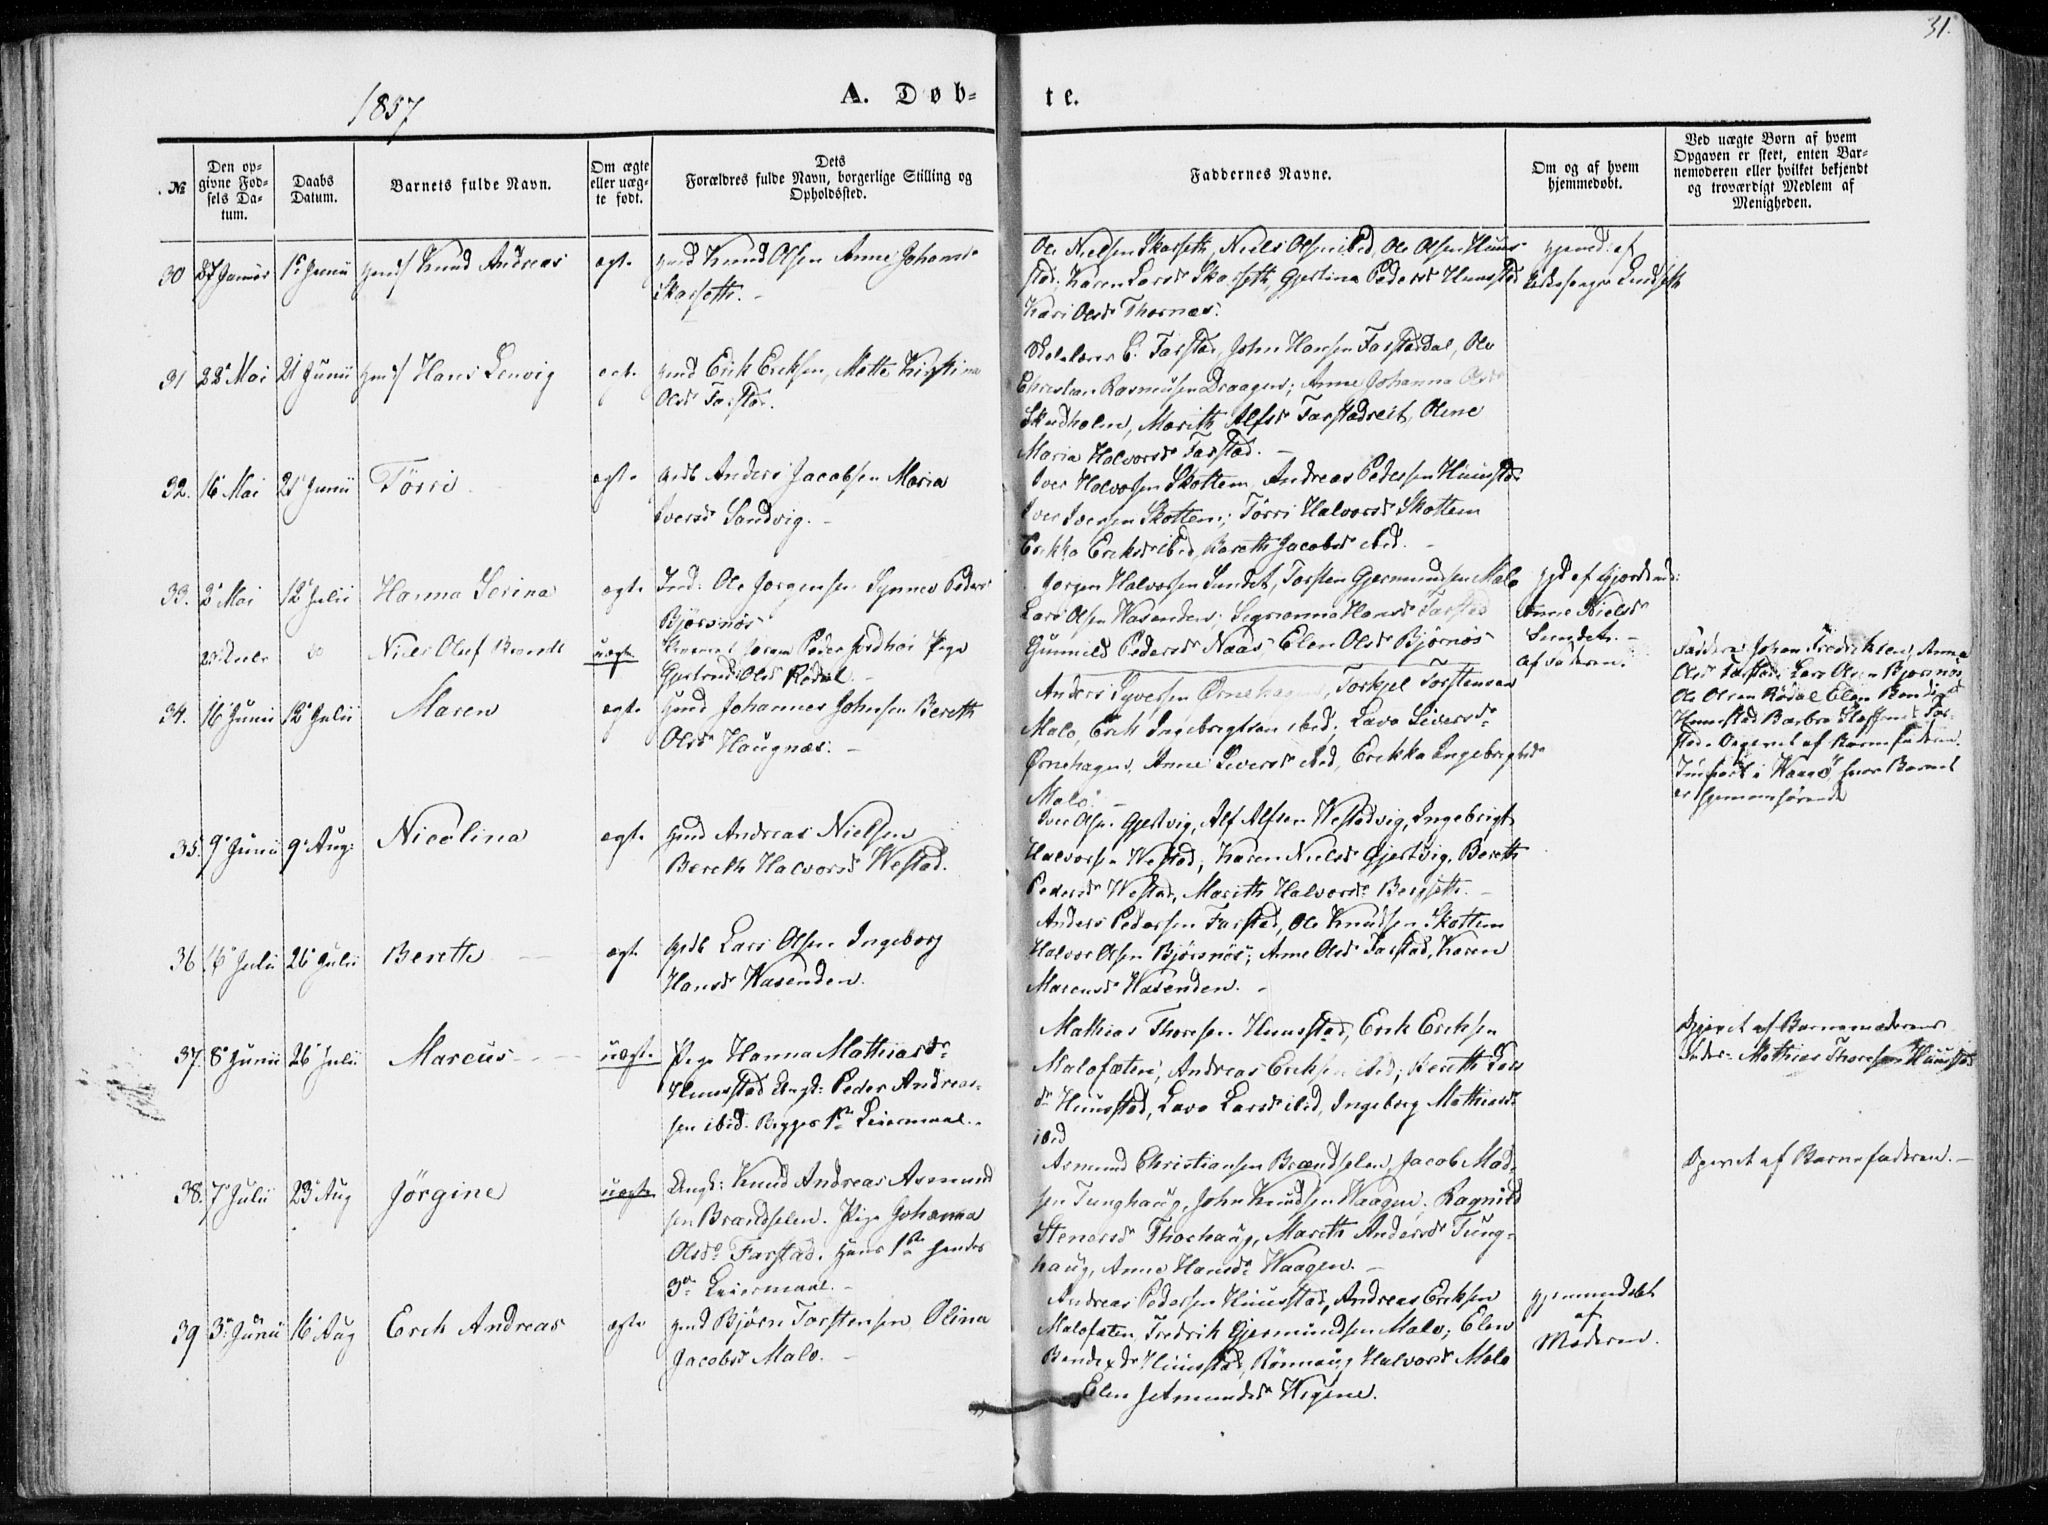 31.
1857
A. Døb-
te.
№
Den op-
givne Fød-
sels Da-
tum.
Daabs
Datum.
Barnets fulde Navn.
Om ægte
eller uæg-
te født.
Dets
Forældres fulde Navn, borgerlige Stilling og
Opholdssted.
Faddernes Navne.
Om og af hvem
hjemmedøbt.
Ved uægte Børn af hvem
Opgaven er skeet, enten Bar-
nemoderen eller hvilket bekjendt
og troværdigt Medlem af
Menigheden.
30 27 Januar 1 Junii Knud Andreas ægte Knud Olsen Anne Johans
Skarseth.
Ole Nielsen Skarseth, Niels Olsen ibid, Ole Olsen Huus
stad, Karen Larsd Skarseth, Gjertina Pedersd Huustad
Kari Olsd Thornæs.
31 22 Mai 21 Junii Hans Lenvig ægt. Erik Eriksen, Mette Kirstina
Olsd Farstad.
Farstad, John Hansen Farstaddal, Ole
Christian Rasmusen Draagen; Anne Johanna Olsd
Skudholm, Marith Alfsd Farstadreit, Oline
Maria Halvorsd Farstad.
32. 16 Mai 21 Junii Törri ægte Anders Jacobsen Maria
Iversd Sandvig.
Iver Halvorsen Skottem, Andreas Pedersen Huustad
Iver Iversen Skottem; Törri Halvorsd Skottem
Erikka Eriksd ibid, Bereth Jacobsd ibid.
33. 2 Mai 12 Julii Hanna Serina ægte Ole Jørgensen Synnev Peders
Bjørsnös
Jørgen Halvorsen Sundet, Torsten Gjermundsen Malo
Lars Olsen Wasenden; Hansd Farstad
Gunnild Pedersd Naas Elen Olsd Bjørnös
af
Anne Nielsd
Sundet.
do Niels Oluf uægte Peder Pige
Gjertrud Olsd Rödal.
af Faderen.
Faddere Johan Fredriksen, Anna
Olsd Farstad, Lars Olsen Bjørsnös
Ole Olsen Rödal Elen
Huustad Barbra
Opgivet af Barnefaderen.
34. 16 Junii 12 Julii Maren ægte Johannes Johnsen Bereth
Olsd Haugnæs.
Anders Syversen Ørnehagen, Torkjel Torstensen
Malo, Erik Ingebrigtsen ibid; Lava Siversd
Ørnehagen, Anne Siversd ibid, Erikka Ingebrigtsd
Malo.
35. 9 Junii 9 Aug: Nicolina ægte Andreas Nielsen
Bereth Halvorsd Westad.
Iver Olsen Gjertvig, Alf Alfsen Westadvig, Ingebrigt
Halvorsen Westad, Karen Nielsd Gjertvig, Bereth
Pedersd Westad, Marith Halvorsd Bergseth.
36 16 Julii 26 Julii Bereth ægt. Lars Olsen Ingeborg
Hansd Wasenden.
Anders Pedersen Farstad, Ole Knudsen Skottem
Halvor Olsen Bjørsnös; Anne Olsd Farstad, Karen
Marcusd Wasenden.
37. 8 Junii 26 Julii Marcus uægte Pige Hanna Mathiasd
Huustad Ungk: Peder Andreas-
sen ibid. Begges 1ste Leiermaal.
Mathias Thoresen Huustad, Erik Eriksen
Malofæten, Andreas Eriksen ibid; Bereth Lars
d Huustad, Lava Larsd ibid, Ingeborg Mathiasd
ibid
Opgivet af Barnemoderens
Fader Mathias Thoresen Huustad
38. 7 Julii 23 Aug Jörgine uægte Ungk: Knud Andreas Asmund
sen Brandselen. Pige Johanna
Olsd Farstad. Hans 1ste hendes
3die Leiermaal.
Asmund Christiansen Brandselen, Jacob Mad-
sen Tunghaug, John Knudsen Waagen, Ragnild
Stenersd Thorhaug, Marith Andersd Tung-
haug, Anne Hansd Waagen.
Opgivet af Barnefaderen.
39 3 Junii 16 Aug Erik Andreas ægte Bjørn Torstensen Olina
Jacobsd Malo.
Andreas Pedersen Huustad, Andreas Eriksen
Malofæten, Fredrik Gjermundsen Malo; Elen
Bendixd Huustad, Rönnaug Halvorsd Malo
Elen Wigene.
hjemmedøbt
af
Moderen.